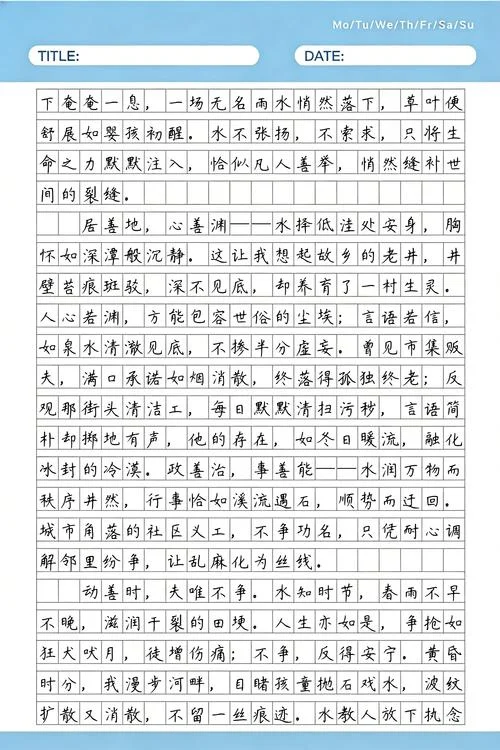 Mo/Tu/We/Th/Fr/Sa/Su
TITLE: DATE:
下奄奄一息，一场无名雨水悄然落下，草叶便
舒展如婴孩初醒。水不张扬，不索求，只将生
命之力默默注入，恰似凡人善举，悄然缝补世
间的裂缝。
居善地，心善渊——水择低洼处安身，胸
怀如深潭般沉静。这让我想起故乡的老井，井
壁苔痕斑驳，深不见底，却养育了一村生灵。
人心若渊，方能包容世俗的尘埃；言语若信，
如泉水清澈见底，不掺半分虚妄。曾见市集贩
夫，满口承诺如烟消散，终落得孤独终老；反
观那街头清洁工，每日默默清扫污秽，言语简
朴却掷地有声，他的存在，如冬日暖流，融化
冰封的冷漠。政善治，事善能——水润万物而
秩序井然，行事恰如溪流遇石，顺势而迂回。
城市角落的社区义工，不争功名，只凭耐心调
解邻里纷争，让乱麻化为丝线。
动善时，夫唯不争。水知时节，春雨不早
不晚，滋润干裂的田埂。人生亦如是，争抢如
狂犬吠月，徒增伤痛；不争，反得安宁。黄昏
时分，我漫步河畔，目睹孩童抛石戏水，波纹
扩散又消散，不留一丝痕迹。水教人放下执念